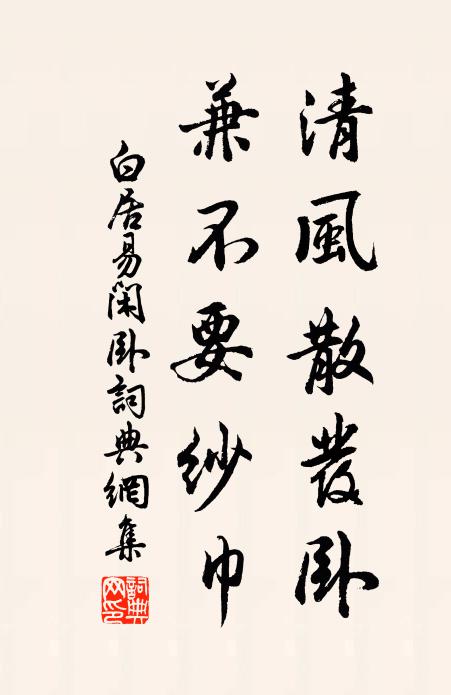 清風散發卧
兼不要紗巾
白居易閑卧詞典網集
詞典網印